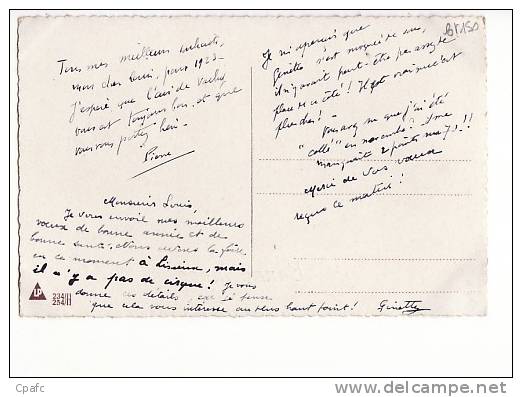 Tous mes meilleurs souhaits,
mon cher Louis, pour 1953.
J'espère que l'air de Vichy
vous est toujours bon, et que
vous vous portez bien.
Pierre
Monsieur Louis,
Je vous envoie mes meilleurs
vœux de bonne année et de
bonne santé. Nous avons la foire
en ce moment à Lisieux, mais
il n'y a pas de cirque! Je vous
donne ces détails car je pense
que cela vous intéresse au plus haut point! Ginette
Je m'aperçois que
Ginette s'est moquée de
il n'y avait peut-être pas assez de
place de ce côté! Il fait vraiment
plus
Vous savez que j'ai été
"collé" en novembre?
manquait 2 points
Merci de vos vœux
reçus ce matin!
234/II
254/II
Cpafc
delcampe.net